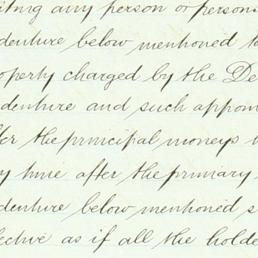 iting any person or persons
denture below mentioned to
operty charged by the De
denture and such appoin
fter the principal moneys
y time after the primary
denture below mentioned s
fective as if all the holde